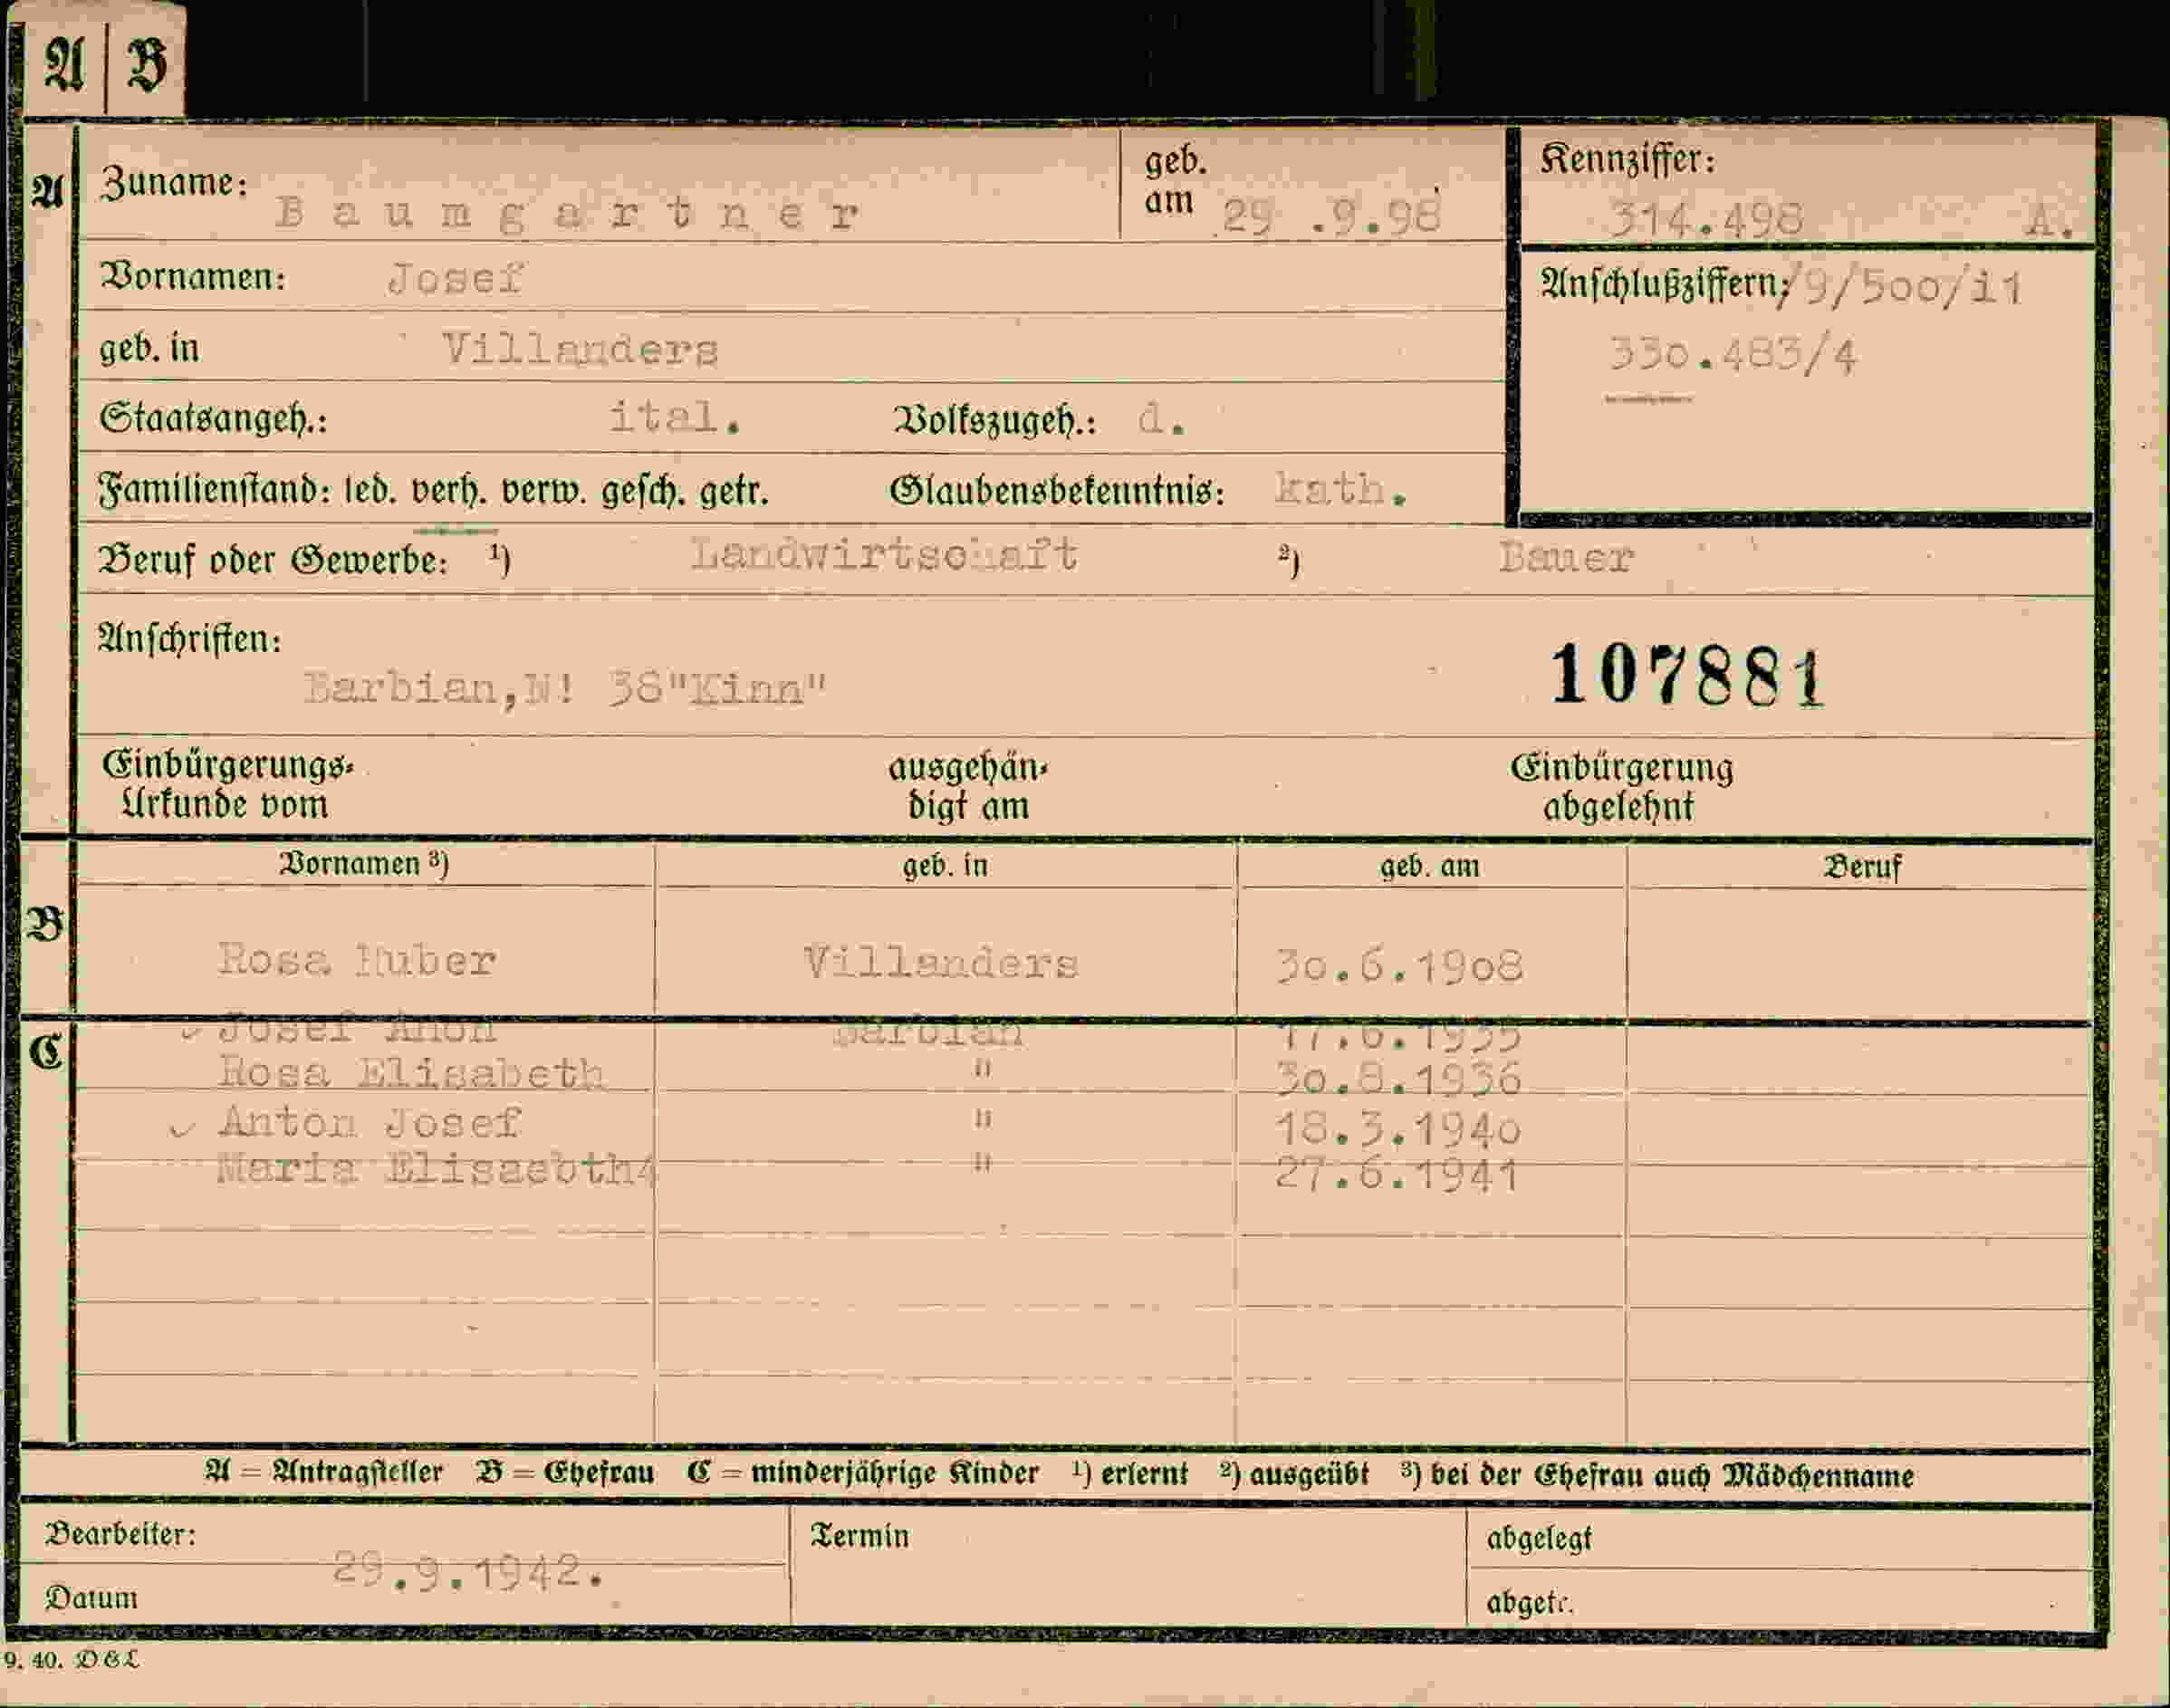 A B
A Zuname: Baumgartner geb. am 29 .9.98 Kennziffer: 314.498 A.
Vornamen: Josef Anschlußziffern: /9/500/11
330.483/4
geb. in Villanders
Staatsangeh.: ital. Volkszugeh.: d.
Familienstand: led. verh. verw. gesch. getr. Glaubensbekenntnis: kath.
Beruf oder Gewerbe: 1) Landwirtschaft 2) Bauer
Anschriften:
Barbian,N! 38"Kinn" 107881
Einbürgerungs- ausgehän- Einbürgerung
Urkunde vom digt am abgelehnt
Vornamen 3) geb. in geb. am Beruf
B
Rosa Huber Villanders 30.6.1908
C Josef Anon Barbian 17.6.1935
Rosa Elisabeth " 30.8.1936
Anton Josef " 18.3.1940
Maria Elisaebth " 27.6.1941
A = Antragsteller B = Ehefrau C = minderjährige Kinder 1) erlernt 2) ausgeübt 3) bei der Ehefrau auch Mädchenname
Bearbeiter: Termin abgelegt
29.9.1942.
Datum abgetr.
9. 40. DEL